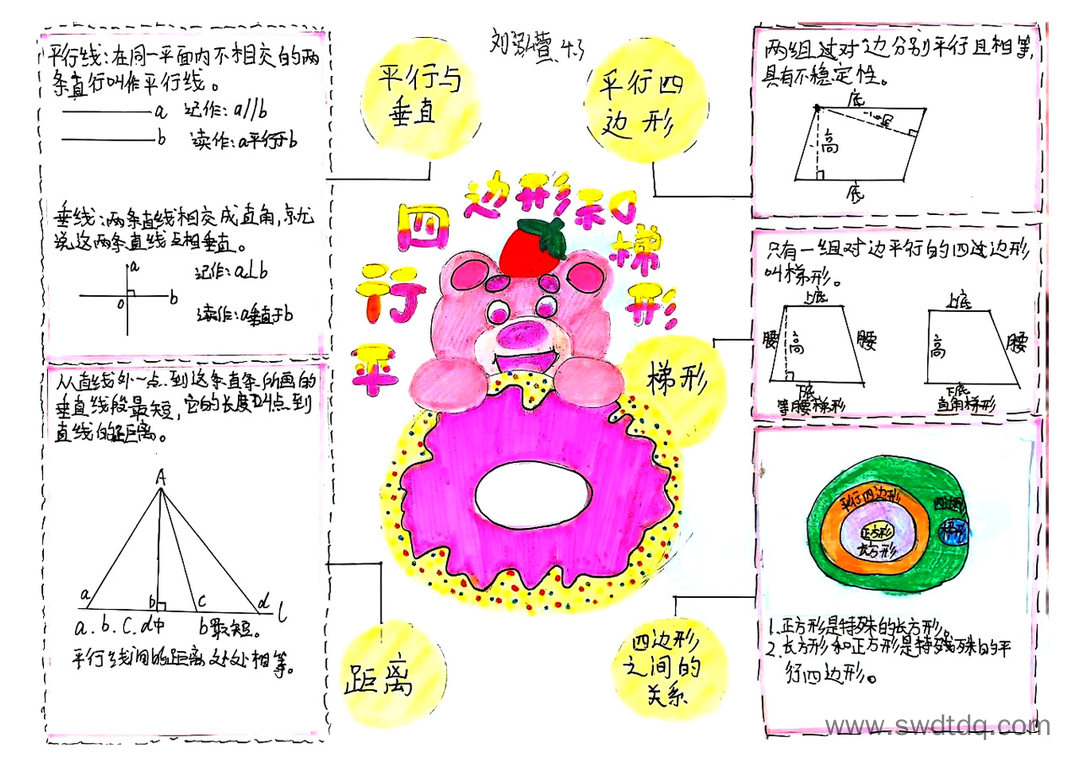 刘泓萱 4.3
平行四边形和梯形
平行与
垂直
平行线:在同一平面内不相交的两
条直行叫作平行线。
a 记作:a//b
b 读作:a平行于b
垂线:两条直线相交成直角,就
说这两条直线互相垂直。
a
o
b
记作:a⊥b
读作:a垂直于b
距离
从直线外一点到这条直条所画的
垂直线段最短,它的长度叫点到
直线的距离。
A
a b c d l
a.b.c.d中 b最短。
平行线间的距离处处相等。
平行四
边形
两组过对边分别平行且相等,
具有不稳定性。
底
高
底
梯形
只有一组对边平行的四边形
叫梯形。
上底
腰 高 腰
下底
等腰梯形
上底
高 腰
下底
直角梯形
四边形
之间的
关系
平行四边形
四边形
正方形
梯形
长方形
1.正方形是特殊的长方形。
2.长方形和正方形是特殊的平
行四边形。
www.swdtdq.com